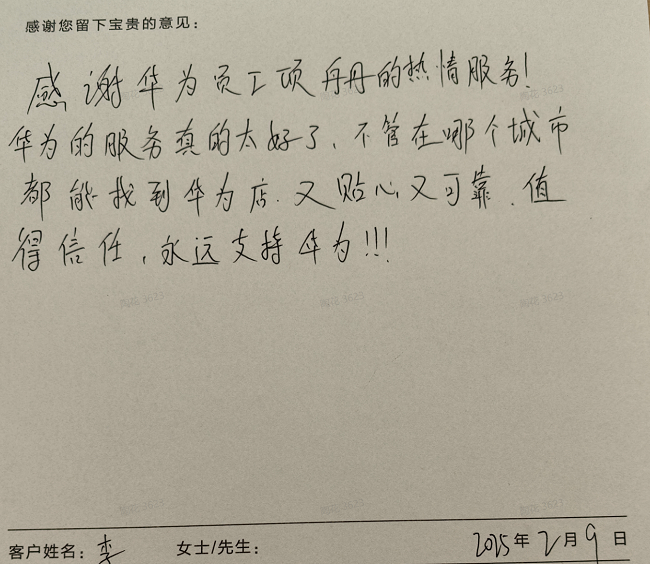 感谢您留下宝贵的意见：
感谢华为员工项丹丹的热情服务！
华为的服务真的太好了、不管在哪个城市
都能找到华为店.又贴心又可靠.值
得信任，永远支持华为!!!
客户姓名：李 女士/先生： 2025年2月9日